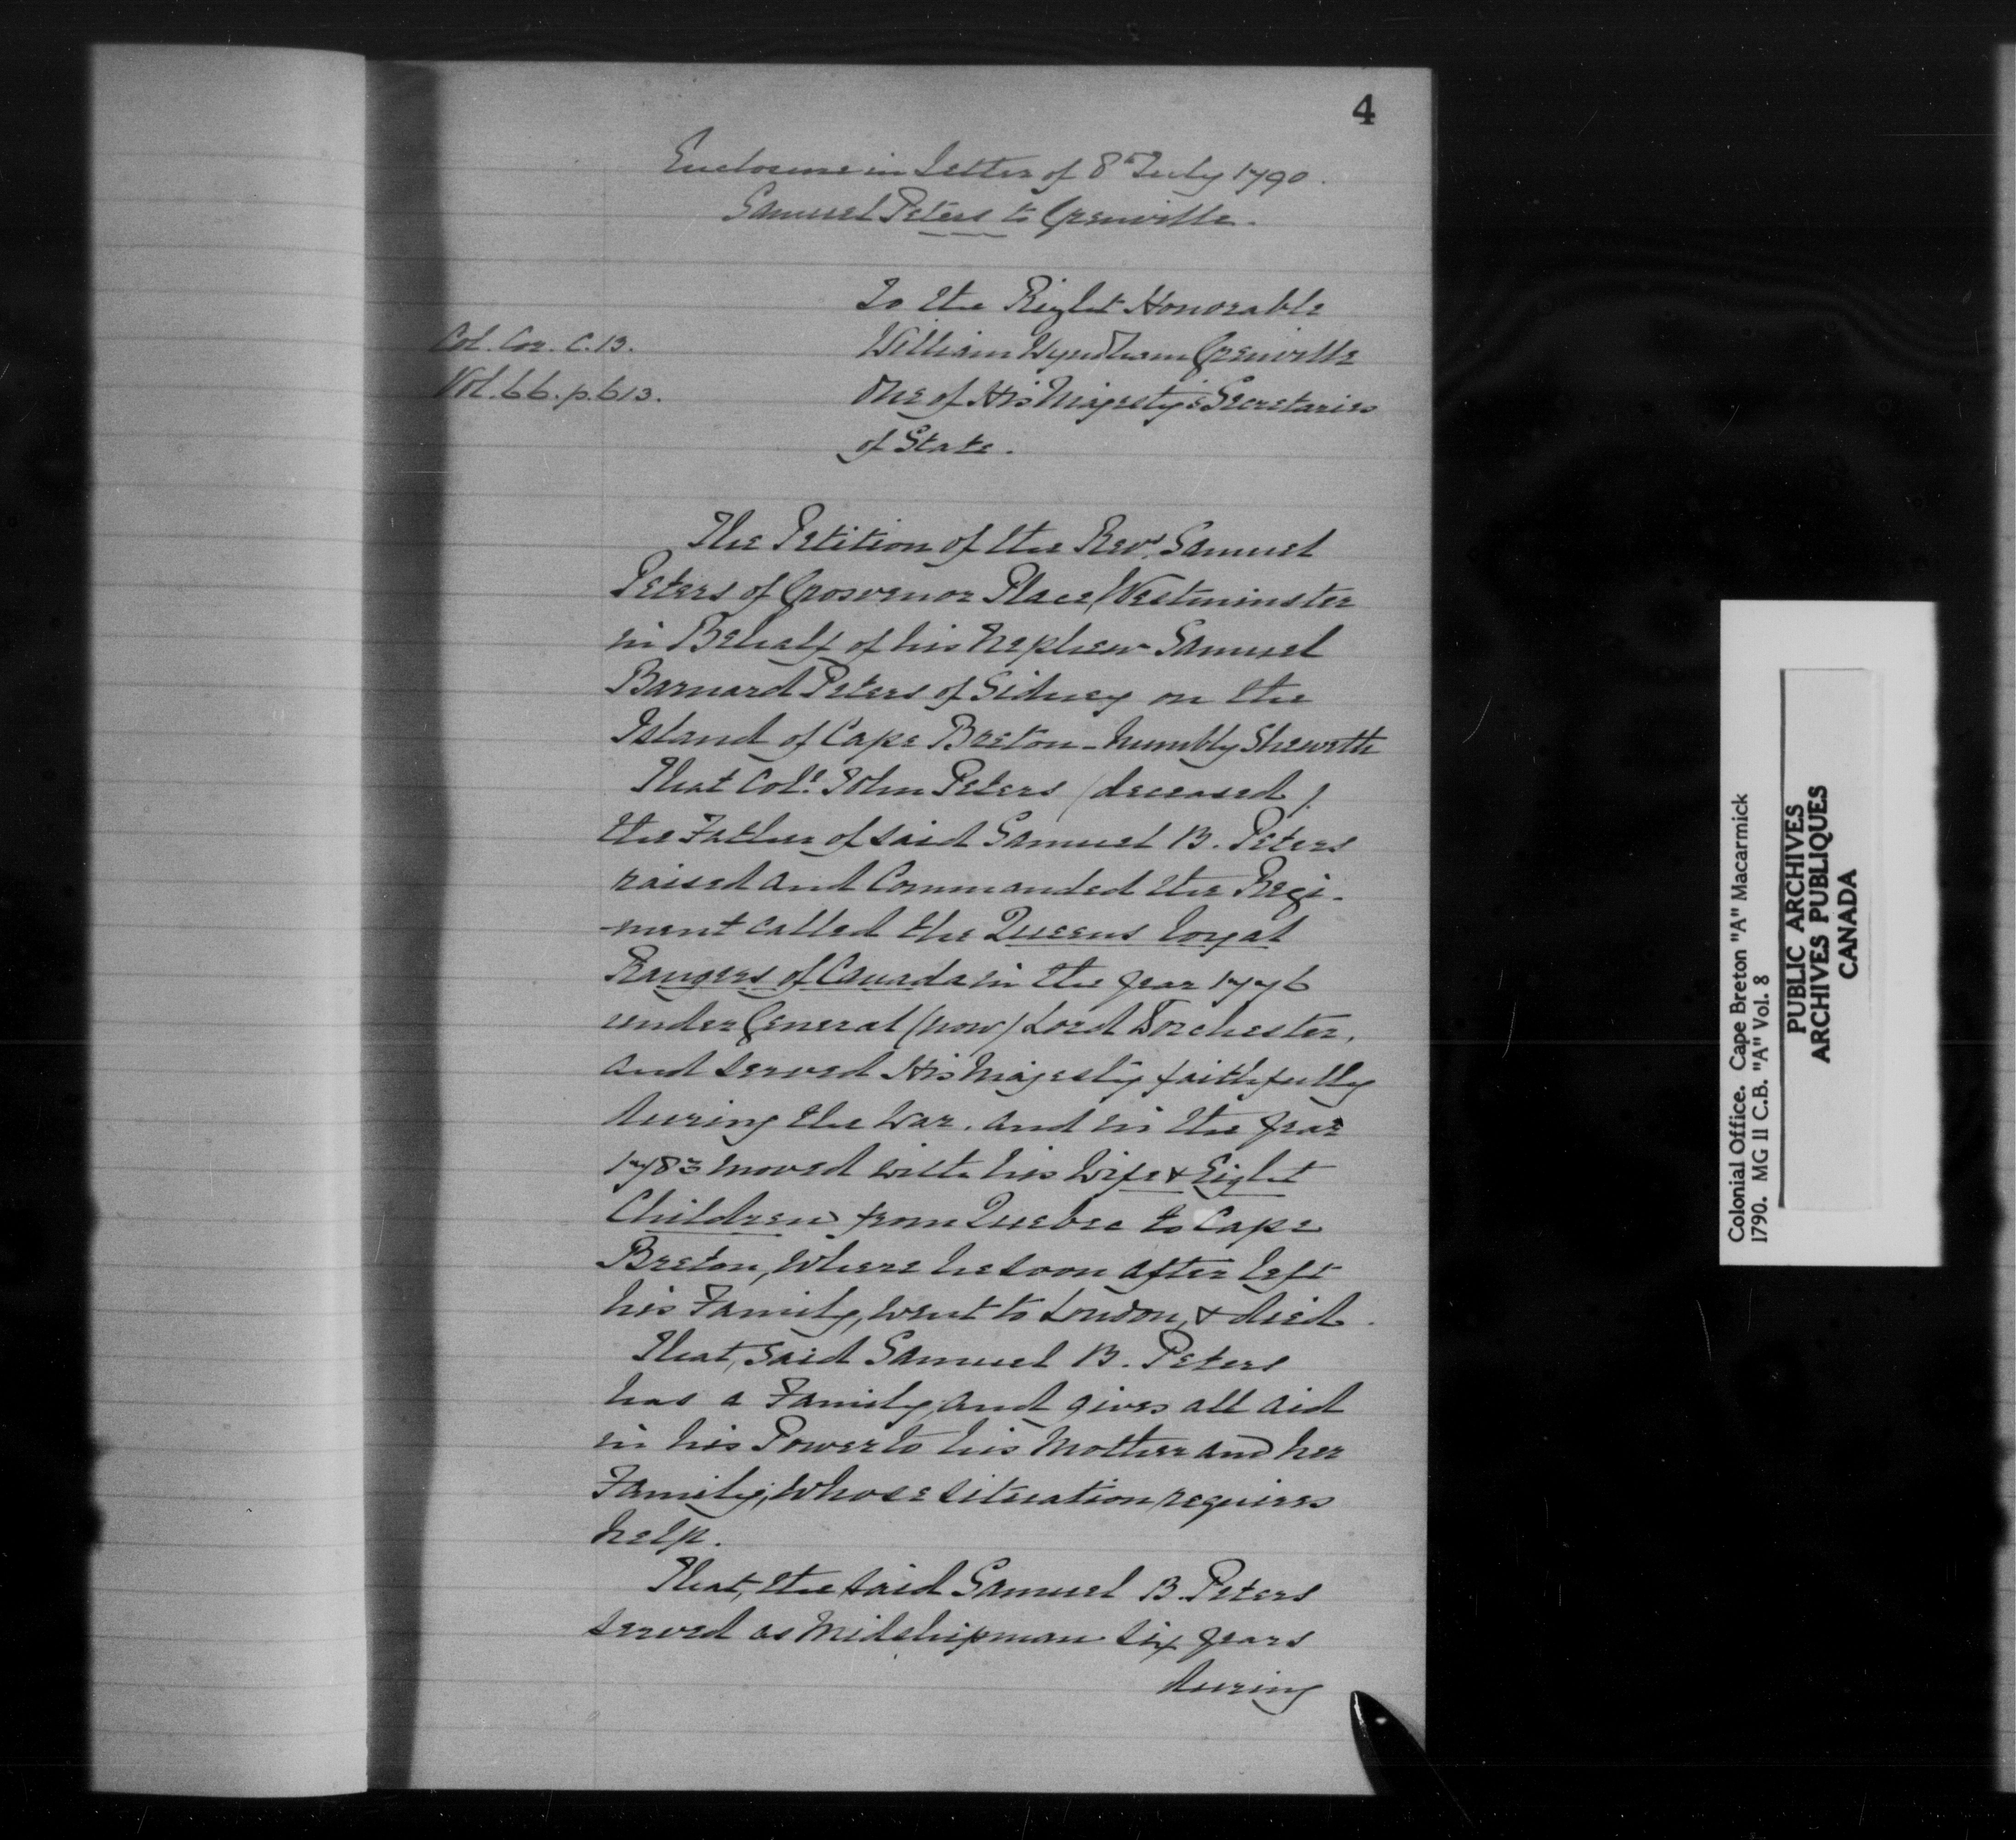 4
Enclosure in Letter of 8th July 1790.
Samuel Peters to Grenville.
To the Right Honorable
William Wyndham Grenville
One of His Majesty's Secretaries
of State.
Col. Cor. C.B.
Vol. 66. p. 613.
The Petition of the Revd. Samuel
Peters of Grosvenor Place Westminster
in Behalf of his Nephew Samuel
Barnard Peters of Sidney on the
Island of Cape Breton - humbly Sheweth
That Coll. John Peters (deceased)
the Father of said Samuel B. Peters
raised and Commanded the Regi-
-ment called the Queens loyal
Rangers of Canada in the year 1776
under General (now) Lord Dorchester,
and served His Majesty faithfully
during the War, and in the year
1783 moved with his Wife & Eight
Children from Quebec to Cape
Breton, where he soon after left
his Family, went to London, & died.
That, said Samuel B. Peters
has a Family, and gives all aid
in his Power to his Mother and her
Family, whose situation requires
help.
That, the said Samuel B. Peters
served as Midshipman six years
during
Colonial Office. Cape Breton "A" Macarmick
1790. MG 11 C.B. "A" Vol. 8
PUBLIC ARCHIVES
ARCHIVES PUBLIQUES
CANADA